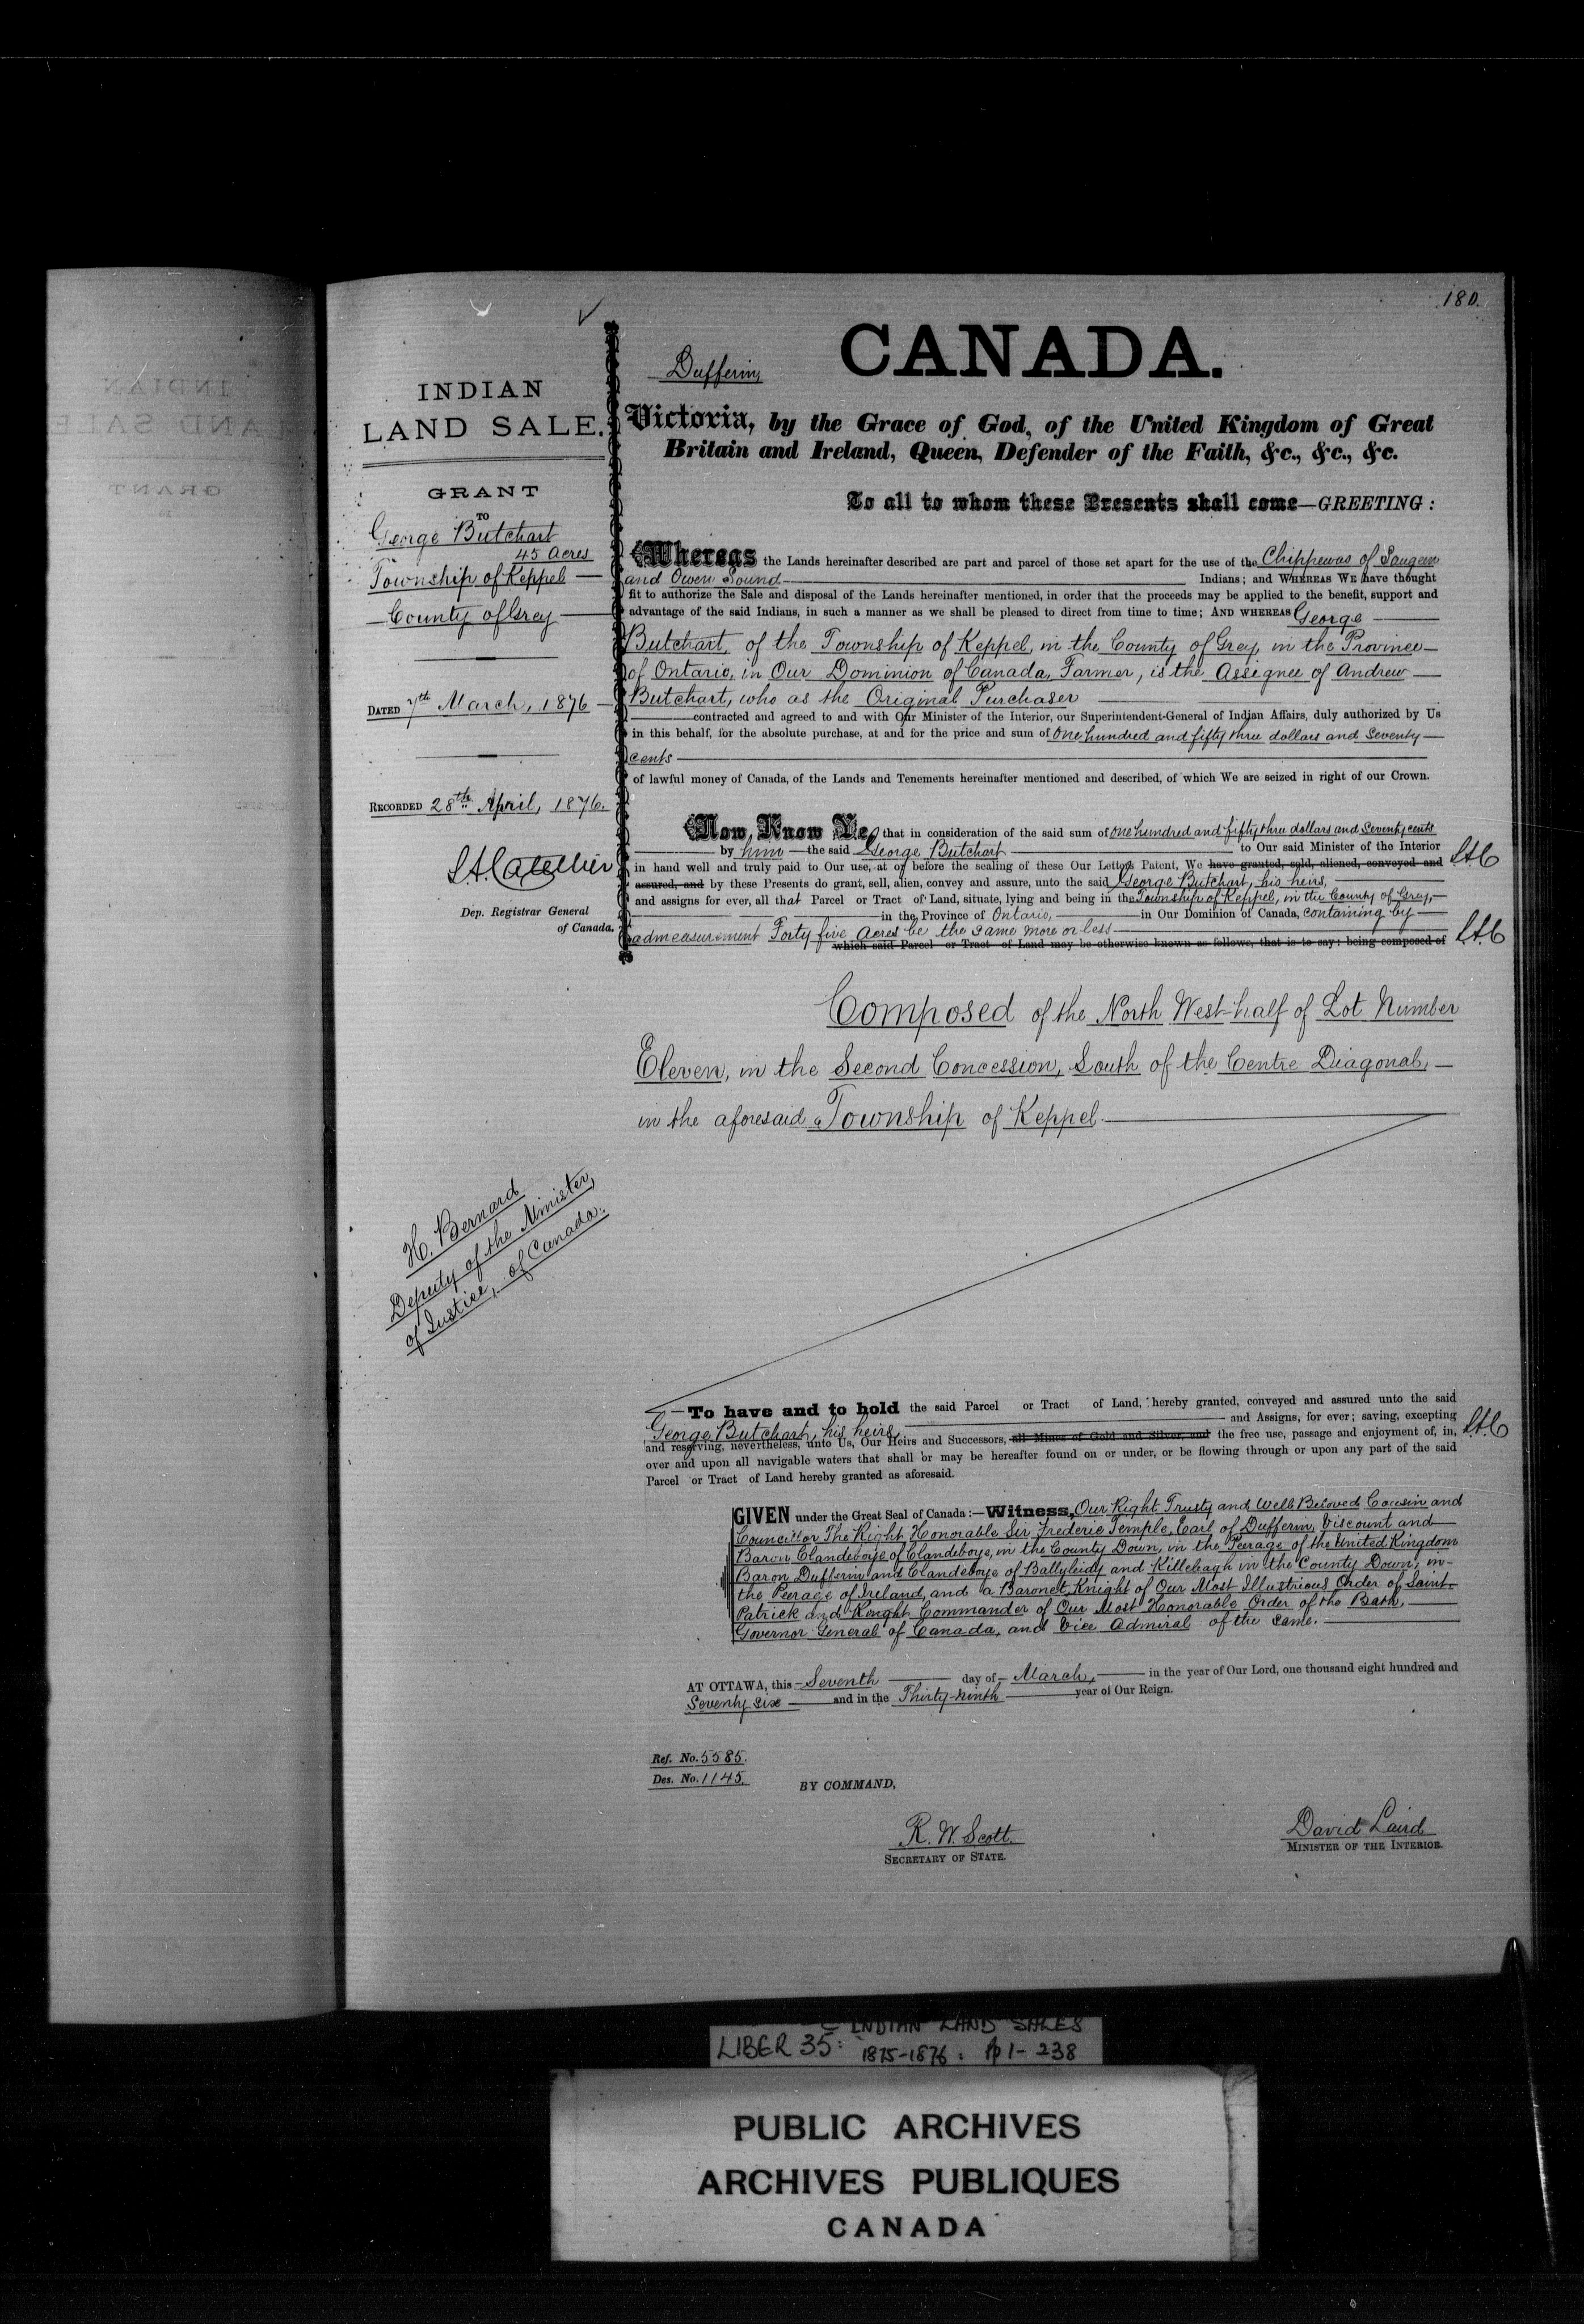 180.
CANADA.
Dufferin
INDIAN
LAND SALE.
GRANT
TO
George Butchart
45 Acres
Township of Keppel
County of Grey
DATED 7th March, 1876
RECORDED 28th April, 1876.
L.A. Catellier
Dep. Registrar General
of Canada.
H. Bernard
Deputy of the Minister,
of Justice, of Canada.
Victoria, by the Grace of God, of the United Kingdom of Great
Britain and Ireland, Queen, Defender of the Faith, &c., &c., &c.
To all to whom these Presents shall come—GREETING:
Whereas the Lands hereinafter described are part and parcel of those set apart for the use of the Chippewas of Saugeen
and Owen Sound Indians; and WHEREAS WE have thought
fit to authorize the Sale and disposal of the Lands hereinafter mentioned, in order that the proceeds may be applied to the benefit, support and
advantage of the said Indians, in such a manner as we shall be pleased to direct from time to time; AND WHEREAS George
Butchart, of the Township of Keppel, in the County of Grey, in the Province
of Ontario, in Our Dominion of Canada, Farmer, is the Assignee of Andrew
Butchart, who as the Original Purchaser
contracted and agreed to and with Our Minister of the Interior, our Superintendent-General of Indian Affairs, duly authorized by Us
in this behalf, for the absolute purchase, at and for the price and sum of One hundred and fifty three dollars and Seventy
cents
of lawful money of Canada, of the Lands and Tenements hereinafter mentioned and described, of which We are seized in right of our Crown.
Now Know Ye, that in consideration of the said sum of one hundred and fifty three dollars and Seventy cents
by him the said George Butchart to Our said Minister of the Interior
in hand well and truly paid to Our use, at or before the sealing of these Our Letters Patent, We have granted, sold, aliened, conveyed and LAC
assured, and by these Presents do grant, sell, alien, convey and assure, unto the said George Butchart, his heirs,
and assigns for ever, all that Parcel or Tract of Land, situate, lying and being in the Township of Keppel, in the County of Grey,
in the Province of Ontario, in Our Dominion of Canada, containing by
admeasurement Forty five Acres be the same more or less
which said Parcel or Tract of Land may be otherwise known as follows, that is to say: being composed of LAC
Composed of the North West half of Lot Number
Eleven, in the Second Concession, South of the Centre Diagonal,
in the aforesaid Township of Keppel.
To have and to hold the said Parcel or Tract of Land, hereby granted, conveyed and assured unto the said
George Butchart, his heirs, and Assigns, for ever; saving, excepting
and reserving, nevertheless, unto Us, Our Heirs and Successors, all Mines of Gold and Silver, and the free use, passage and enjoyment of, in, LAC
over and upon all navigable waters that shall or may be hereafter found on or under, or be flowing through or upon any part of the said
Parcel or Tract of Land hereby granted as aforesaid.
GIVEN under the Great Seal of Canada:—Witness, Our Right Trusty and Well Beloved Cousin and
Councillor The Right Honorable Sir Frederic Temple, Earl of Dufferin, Viscount and
Baron Clandeboye of Clandeboye, in the County Down, in the Peerage of the United Kingdom
Baron Dufferin and Clandeboye of Ballyleidy and Killeleagh in the County Down, in
the Peerage of Ireland, and a Baronet, Knight of Our Most Illustrious Order of Saint
Patrick and Knight Commander of Our Most Honorable Order of the Bath,
Governor General of Canada, and Vice Admiral of the same.
AT OTTAWA, this Seventh day of March, in the year of Our Lord, one thousand eight hundred and
Seventy six and in the Thirty-ninth year of Our Reign.
Ref. No. 5585.
Des. No. 1145.
BY COMMAND,
R. W. Scott.
SECRETARY OF STATE.
David Laird
MINISTER OF THE INTERIOR.
INDIAN LAND SALES
LIBER 35: 1875-1876: pp 1-238
PUBLIC ARCHIVES
ARCHIVES PUBLIQUES
CANADA